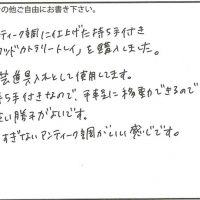 の他ご自由にお書き下さい。
ティーク調に仕上げた持ち手付き
ウッドカトラリートレイ」を購入しました。
芸道具入れとして使用してます。
持ち手付きなので、平車に移動できるので
い勝手がよいです。
すぎないアンティーク調がいい感じです。